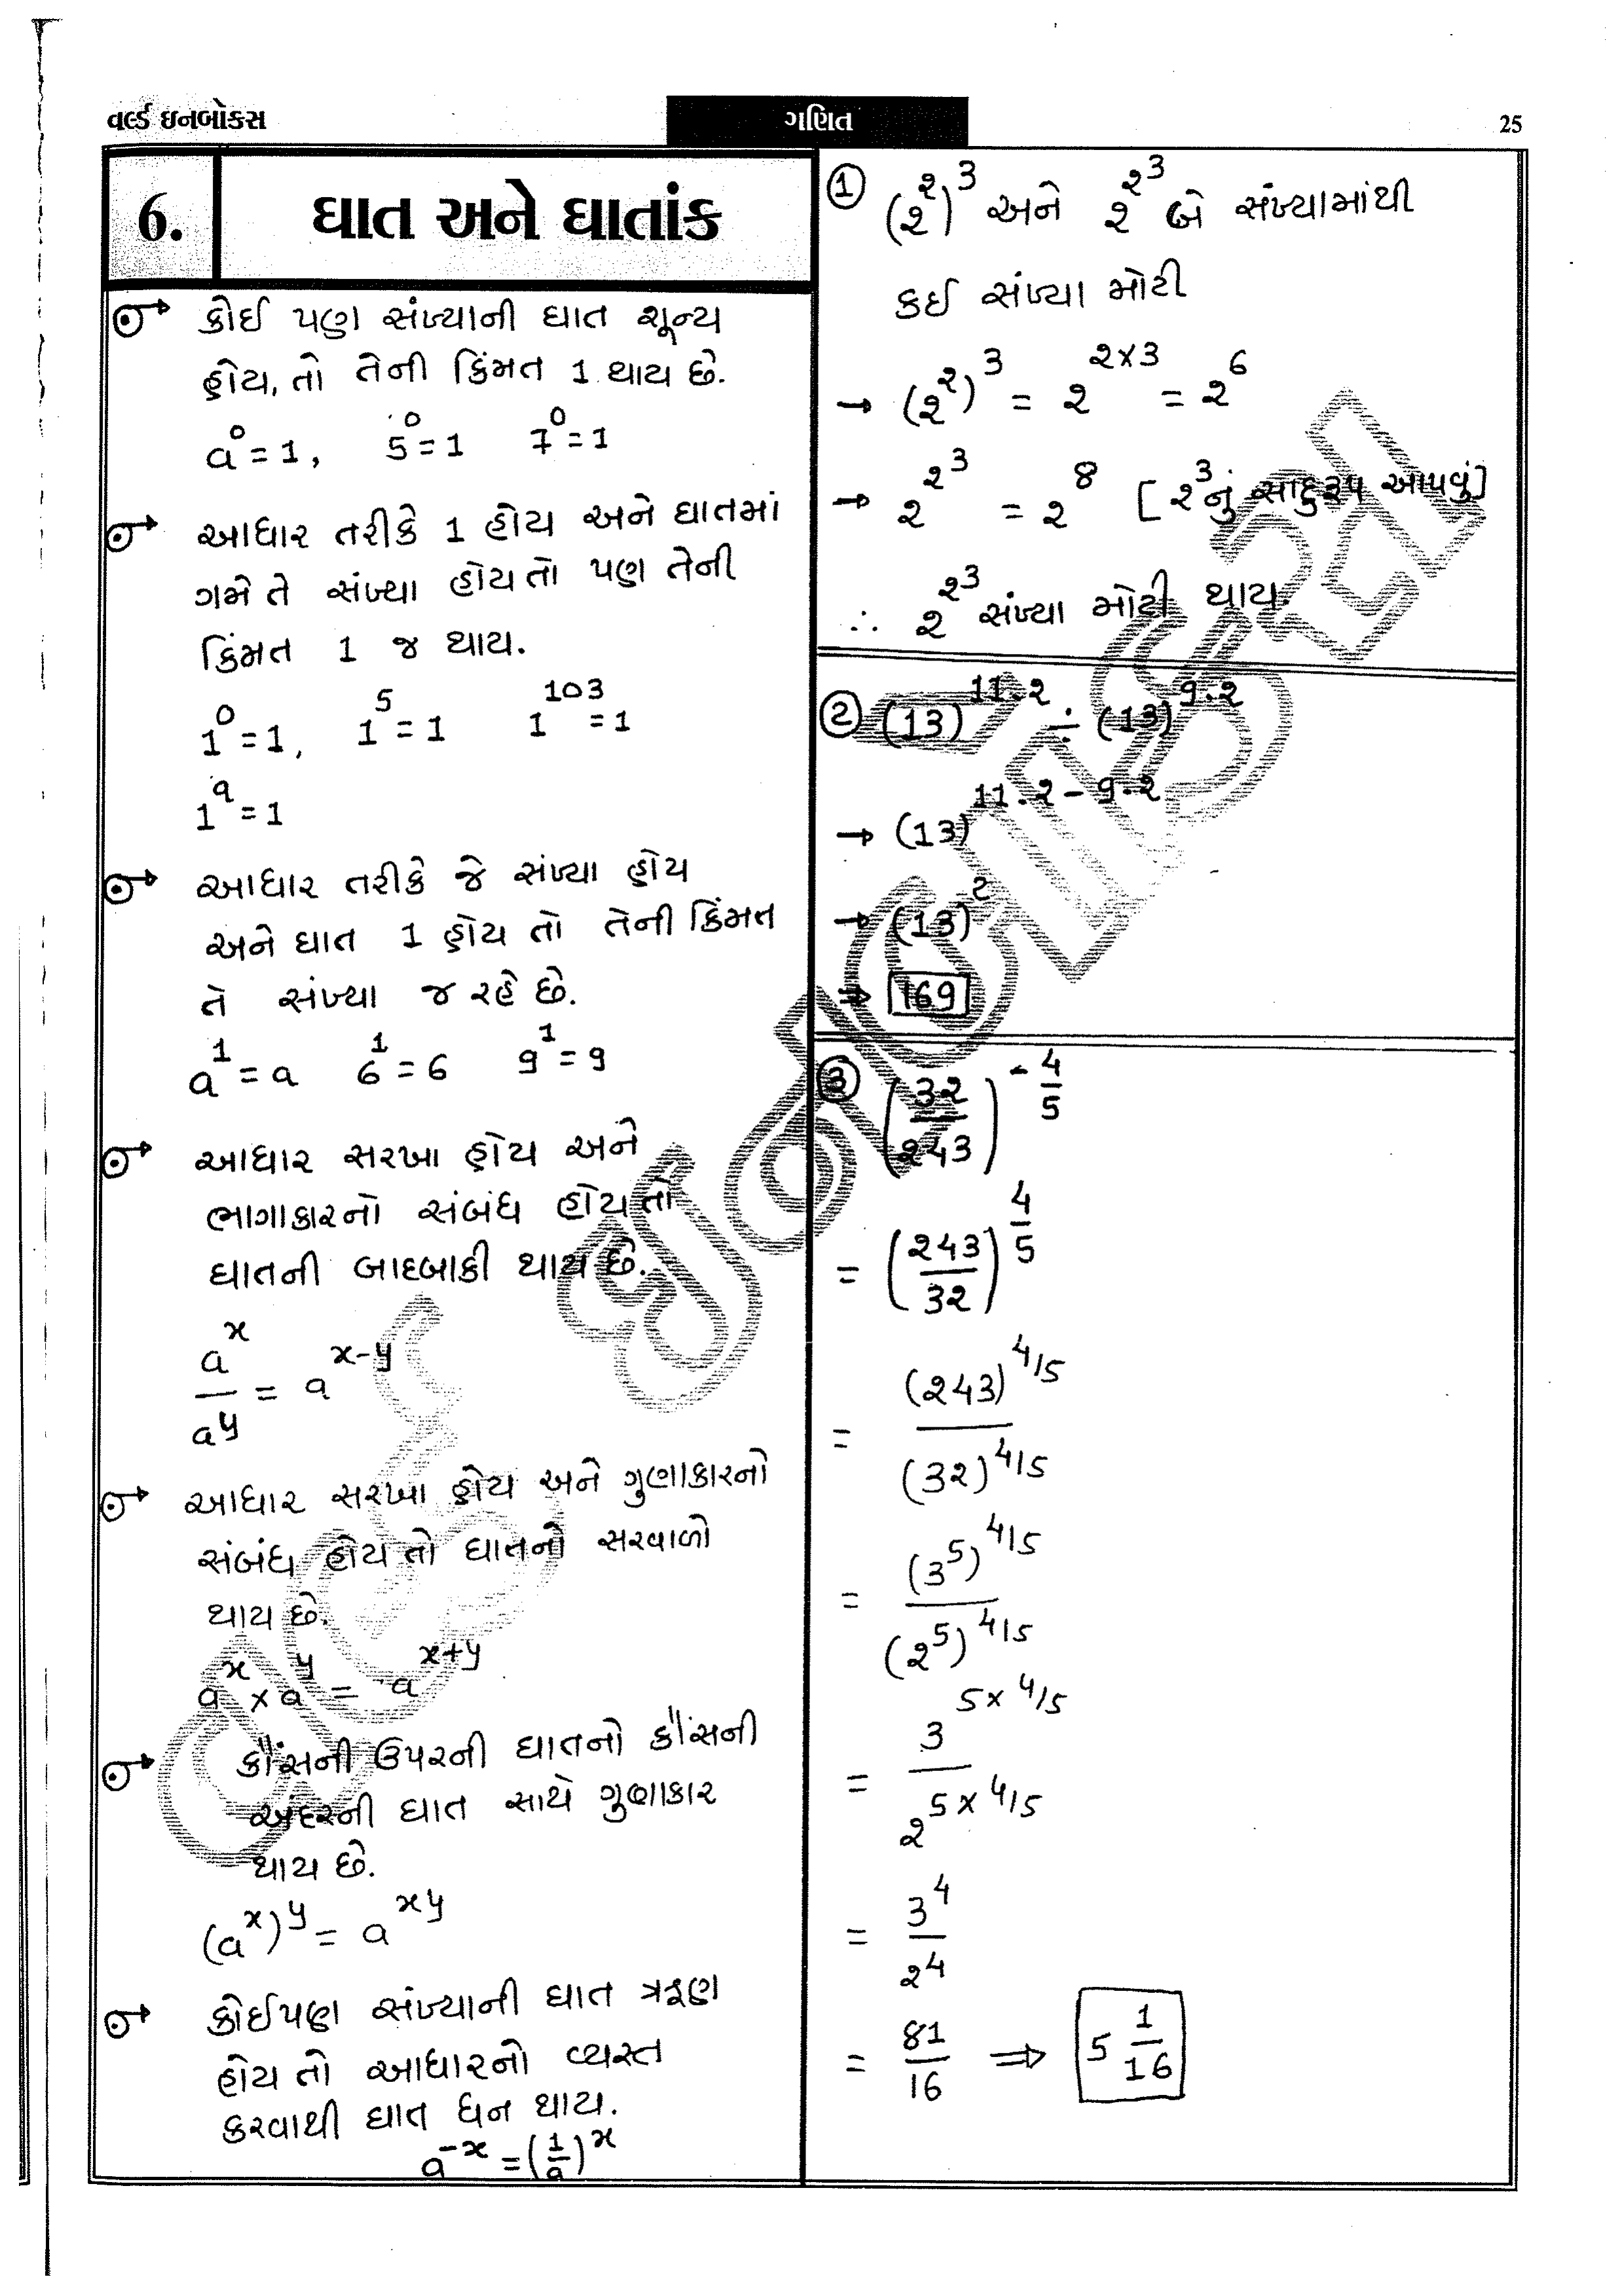 વર્લ્ડ ઇનબોક્સ
ગણિત
25
6.
ઘાત અને ઘાતાંક
કોઈ પણ સંખ્યાની ઘાત શૂન્ય
હોય, તો તેની કિંમત 1 થાય છે.
a⁰ = 1, 5⁰ = 1 7⁰ = 1
આધાર તરીકે 1 હોય અને ઘાતમાં
ગમે તે સંખ્યા હોય તો પણ તેની
કિંમત 1 જ થાય.
1⁰ = 1, 1⁵ = 1 1¹⁰³ = 1
1^a = 1
આધાર તરીકે જે સંખ્યા હોય
અને ઘાત 1 હોય તો તેની કિંમત
તે સંખ્યા જ રહે છે.
a¹ = a 6¹ = 6 9¹ = 9
આધાર સરખા હોય અને
ભાગાકારનો સંબંધ હોય તો
ઘાતની બાદબાકી થાય છે.
a^x / a^y = a^(x-y)
આધાર સરખા હોય અને ગુણાકારનો
સંબંધ હોય તો ઘાતનો સરવાળો
થાય છે.
a^x × a^y = a^(x+y)
કૌંસની ઉપરની ઘાતનો કૌંસની
અંદરની ઘાત સાથે ગુણાકાર
થાય છે.
(a^x)^y = a^xy
કોઈપણ સંખ્યાની ઘાત ઋણ
હોય તો આધારનો વ્યસ્ત
કરવાથી ઘાત ધન થાય.
a^-x = (1/a)^x
① (૨^૨)^3 અને ૨^૨^3 બે સંખ્યામાંથી
કઈ સંખ્યા મોટી
→ (૨^૨)^3 = ૨^(૨×3) = ૨^6
→ ૨^૨^3 = ૨^8 [૨^3નું સાદુરૂપ આપવું]
∴ ૨^૨^3 સંખ્યા મોટી થાય.
② (13)^11.૨ ÷ (13)^9.૨
→ (13)^(11.૨ - 9.૨)
→ (13)^2
⇒ 169
③ (3૨/૨43)^(-4/5)
= (૨43/3૨)^(4/5)
= (૨43)^4/5 / (3૨)^4/5
= (3^5)^4/5 / (૨^5)^4/5
= 3^(5×4/5) / ૨^(5×4/5)
= 3^4 / ૨^4
= 81/16 ⇒ 5 1/16